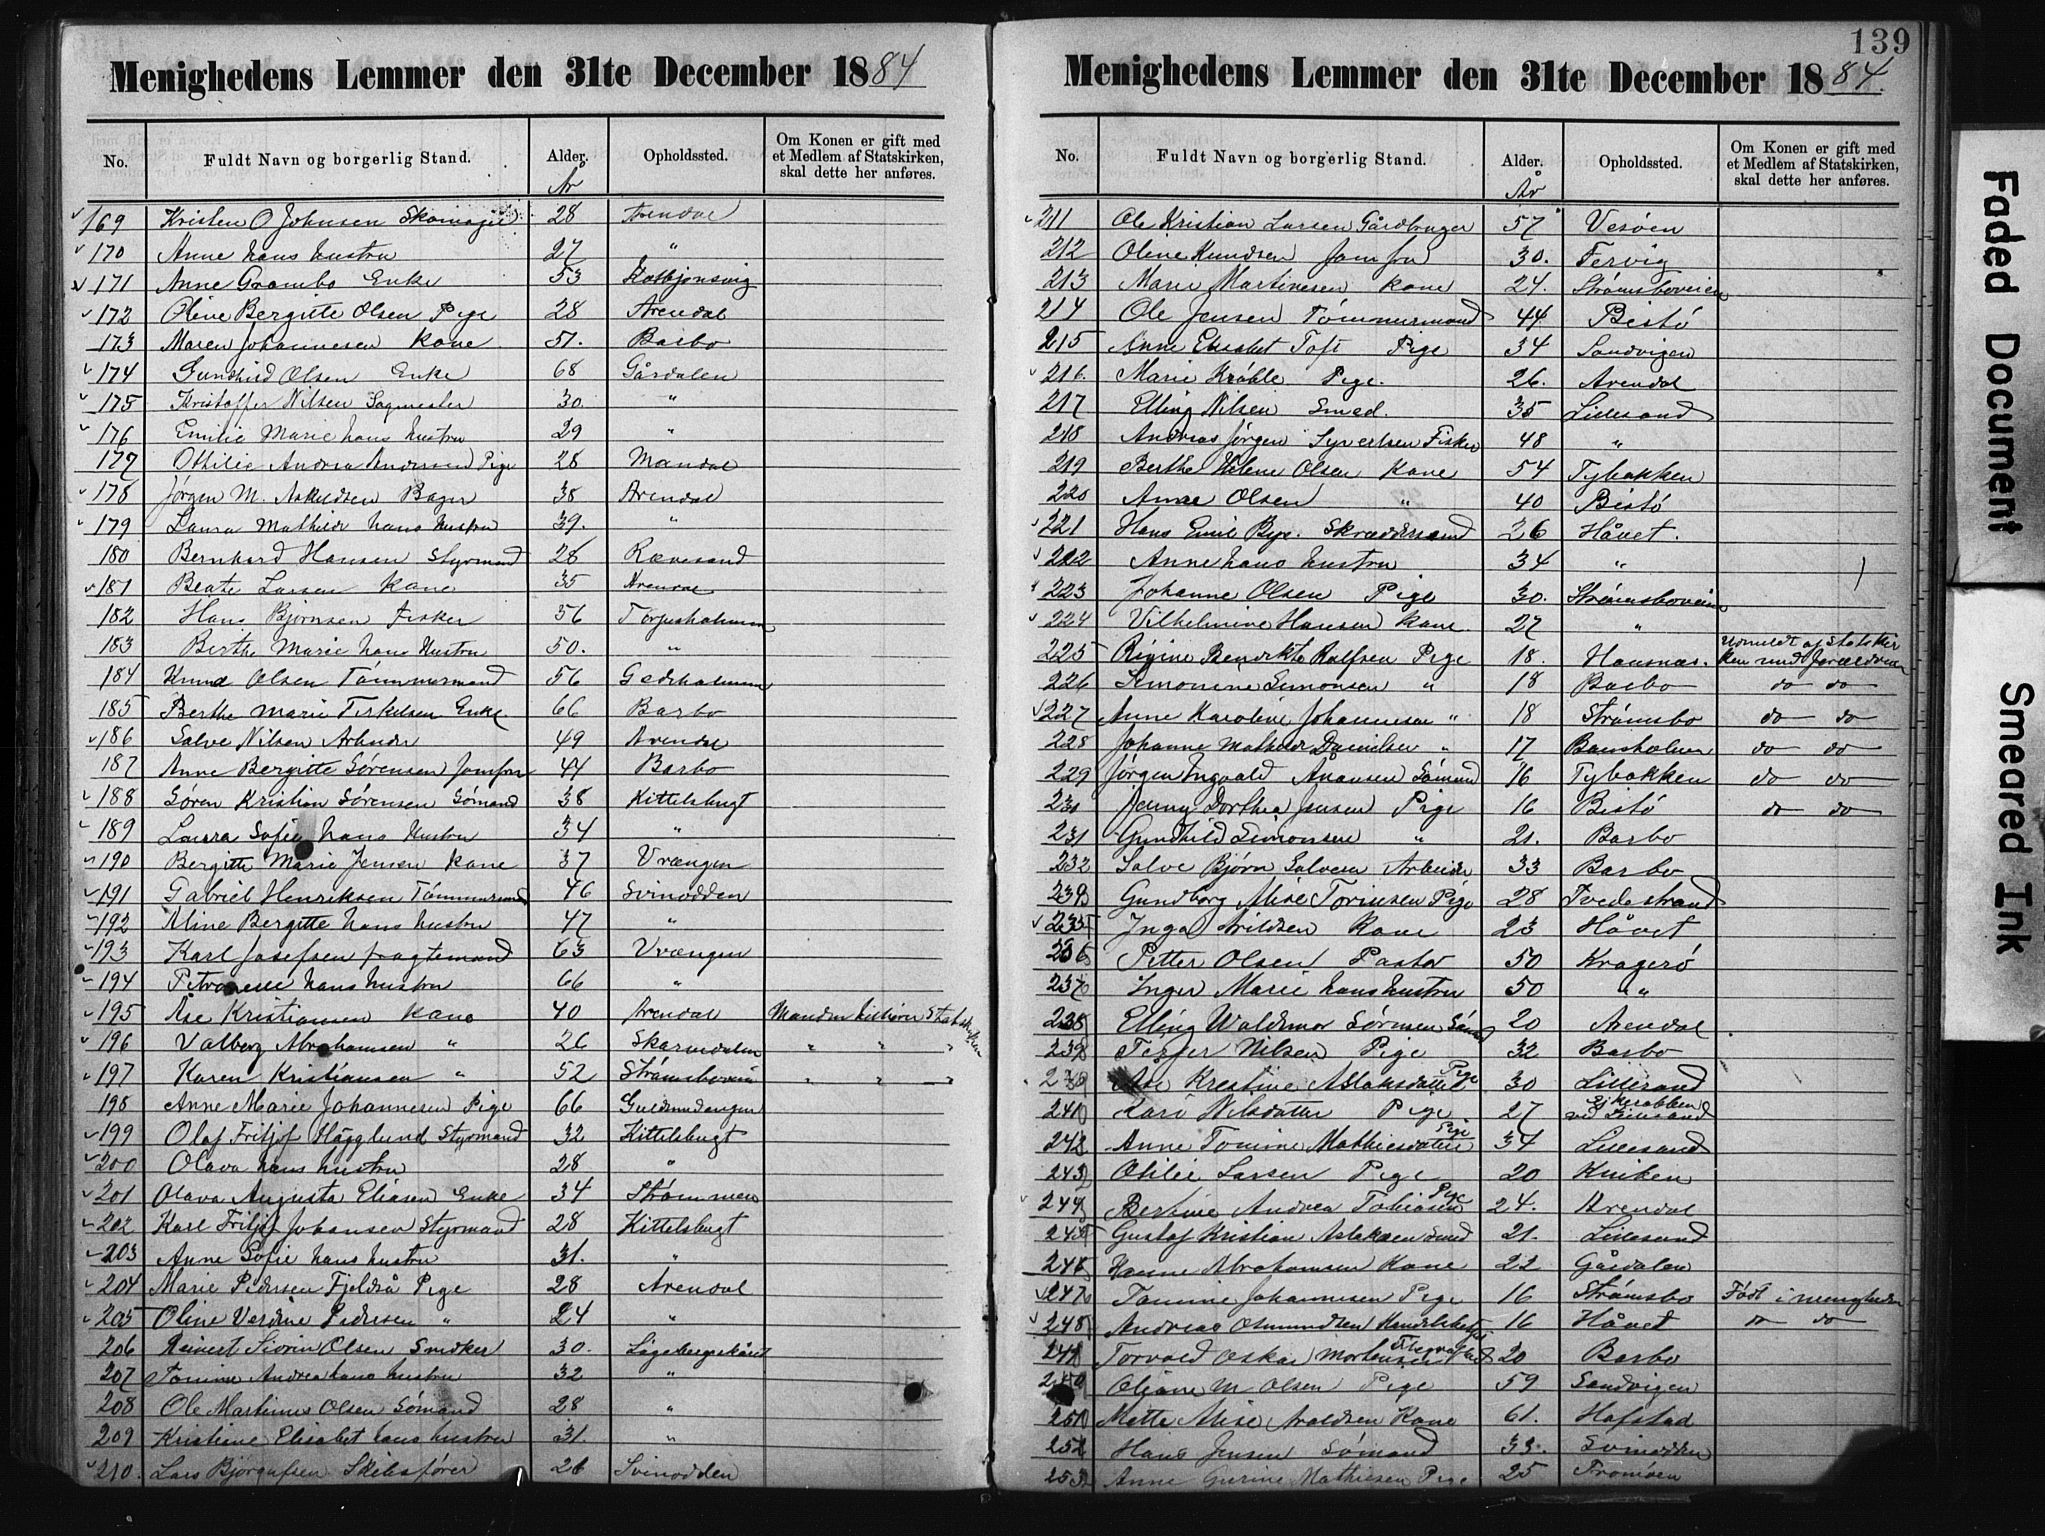 Menighedens Lemmer den 31te December 1884
No. Fuldt Navn og borgerlig Stand. Alder. Opholdssted. Om Konen er gift med et Medlem af Statskirken, skal dette her anføres.
År
169 Kristen O Johnsen Skomager 28 Arendal
170 Anne hans hustru 27 "
171 Anne Grambo Enke 53 Kolbjønsvig
172 Oline Bergitte Olsen Pige 28 Arendal
173 Maren Johannesen kone 51. Barbo
174 Gunshild Olsen Enke 68 Gårdalen
175 Kristoffer Nilsen Sagmester 30. "
176 Emilie Marie hans hustru 29 "
177 Othilie Andrea Andersen Pige 28 Mandal
178 Jørgen M. Askildsen Bager 38 Arendal
179 Laura Mathilde hans hustru 39. "
180 Bernhard Hansen Styrmand 28 Rævesand
181 Beate Larsen Kone 35 Arendal
182 Hans Bjørnsen fisker 56 Torjusholmen
183 Berthe Marie hans Hustru 50. "
184 Knud Olsen Tømmermand 56 Gedeholmen
185 Berthe Marie Terkelsen Enke 66 Barbo
186 Salve Nilsen Arbeider 49 Arendal
187 Anne Bergitte Sørensen Jomfru 44 Barbo
188 Søren Kristian Sørensen Sømand 38 Kittelsbugt
189 Laura Sofie hans Hustru 34 "
190 Bergitte Marie Jensen Kone 37 Vrængen
191 Gabriel Henriksen Tømmermand 46 Svinodden
192 Aline Bergitte hans hustru 47 "
193 Karl Josefsen fragtemand 63 Vrængen
194 Petronelle hans hustru 66 "
195 Åse Kristiansen kone 40 Arendal Manden tilhører Statskirken
196 Valborg Abrahamsen " 26 Skarvedalen " " "
197 Karen Kristiansen " 52 Strømsboveien " " "
198 Anne Marie Johannesen Pige 66 Guldsmedengen
199 Olaf Fritjof Hägglund Styrmand 32 Kittelsbugt
200 Olava hans hustru 28 "
201 Olava Augusta Eliasen Enke 34 Strømmen
202 Karl Fritjof Johansen Styrmand 28 Kittelsbugt
203 Anne Sofie hans hustru 31. "
204 Marie Pedersen Fjeldså Pige 28 Arendal
205 Oline Verdine Pedersen " 24 "
206 Reinert Siorin Olsen Snedker 30. Logebergskåret
207 Tomine Andrea hans hustru 32 "
208 Ole Martinus Olsen Sømand 28 "
209 Kristiane Elisabet hans hustru 31. "
210. Lars Bjørgufsen Skibsfører 26 Svinodden
139
Menighedens Lemmer den 31te December 1884.
No. Fuldt Navn og borgerlig Stand. Alder. Opholdssted. Om Konen er gift med et Medlem af Statskirken, skal dette her anføres.
År
211 Ole Kristian Larsen Gårdbruger 57 Vesøen
212 Oline Knudsen Jomfru 30. Fervig
213 Marie Martinesen Kone 24. Strømsboveien
214 Ole Jensen Tømmermand 44 Bestø
215 Anne Elisabet Toft Pige 34 Sandvigen
216. Marie Krøhle Pige. 26. Arendal
217 Elling Nilsen Smed. 35 Lillesand
218 Andreas Jørgen Syvertsen Fisker 48 "
219 Berthe Helene Olsen Kone 54 Tybakken
220 Anne Olsen " 40 Bestø
221 Hans Emil Bye. Skræddersvend 26 Håvet.
222 Anne hans hustru 34 "
223 Johanne Olsen Pige 30. Strømsboveien
224 Vilhelmine Hansen Kone. 27 "
225 Regine Benedikte Rolfsen Pige 18. Hausnæs. Udmeldt af Statskirken med forældrene
226 Simonine Simonsen " 18 Barbo do do
227 Anne Karoline Johannesen " 18 Strømsbo do do
228 Johanne Mathilde Danielsen " 17 Bausholmen do do
229 Jørgen Ingvald Anansen Sømand 16 Tybakken do do
230 Jenny Dorthea Jensen Pige 16 Bestø do do
231 Gundhild Simonsen " 21. Barbo
232 Salve Bjørn Salvesen Arbeider 33 Barbo
233 Gundborg Alise Torinsen Pige 28 Tvedestrand
235 Inga Arildsen Kone 23 Håvet
236 Petter Olsen Pastor 50 Kragerø
237 Inger Marie hans hustru 50 " "
238 Elling Waldemar Sørensen Sømd 20 Arendal
239 Terjer Nilsen Pige 32 Barbo
240 Åse Krestine Aslaksdatter Pige 30 Lillesand
241 Kari Nilsdatter Pige 27 Eikerabben ved Lillesand
242 Anne Tomine Mathiesdatter Pige 34 Lillesand
243 Otilie Larsen Pige 20 Kniken
244 Bertine Andrea Tobiasen Pige 24. Arendal
245 Gustaf Kristian Aslaksen smed 21. Lillesand
246 Hanne Abrahamsen Kone 22 Gårdalen
247 Tomine Johannesen Pige 16 Strømsbo Født i menigheden
248 Andreas Osmundsen Handelsbetjent 16 Håvet do do
249 Torvald Oskar Mortensen 20 Barbo
250 Oliane M Olsen Pige 59 Sandvigen
251 Mette Alise Avaldsen Kone 61. Hofstad
252 Hans Jensen Sømand 33. Svinodden
253 Anne Gurine Mathiesen Pige 25 Tromøen
Faded Document
Smeared Ink